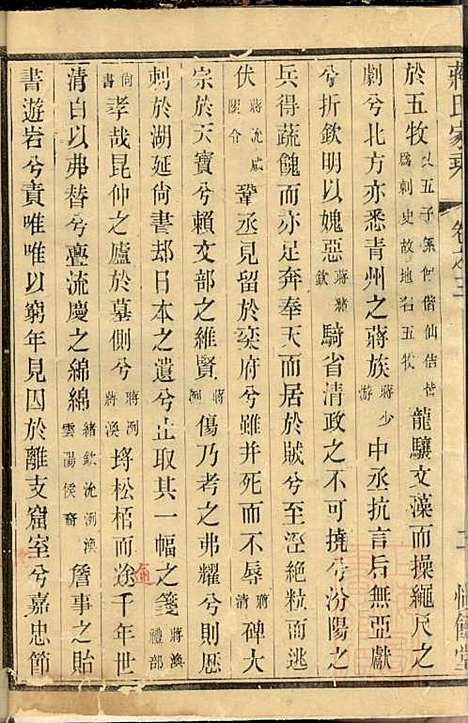 蔣氏家乘 卷之三
於五牧 以五子孫何偕仙佶皆爲刺史故地名五牧 龍驤文藻而操繩尺之
劇兮北方亦悉青州之蔣族 蔣少游 中丞抗言后無亞獻
兮折欽明以媿惡 蔣緒欽 騎省清政之不可撓兮汾陽之
兵得蔬餽而亦足奔奉天而居於賊兮至涇絶粒而逃
伏 蔣沇咸陽令 鞏丞見留於奕府兮雖并死而不辱 蔣清 碑大
宗於天寶兮賴文部之維賢 蔣洌 傷乃考之弗耀兮則歴
刺於湖延尚書却日本之遺兮止取其一幅之箋 蔣渙禮部
尚書 孝哉昆仲之廬於墓側兮 蔣洌蔣渙 埓松楷而淦千年世
清白以弗替兮亹流慶之綿綿 緒欽沇洌渙雲陽侯裔 詹事之貽
書遊岩兮責唯唯以窮年見囚於離支窟室兮嘉忠節